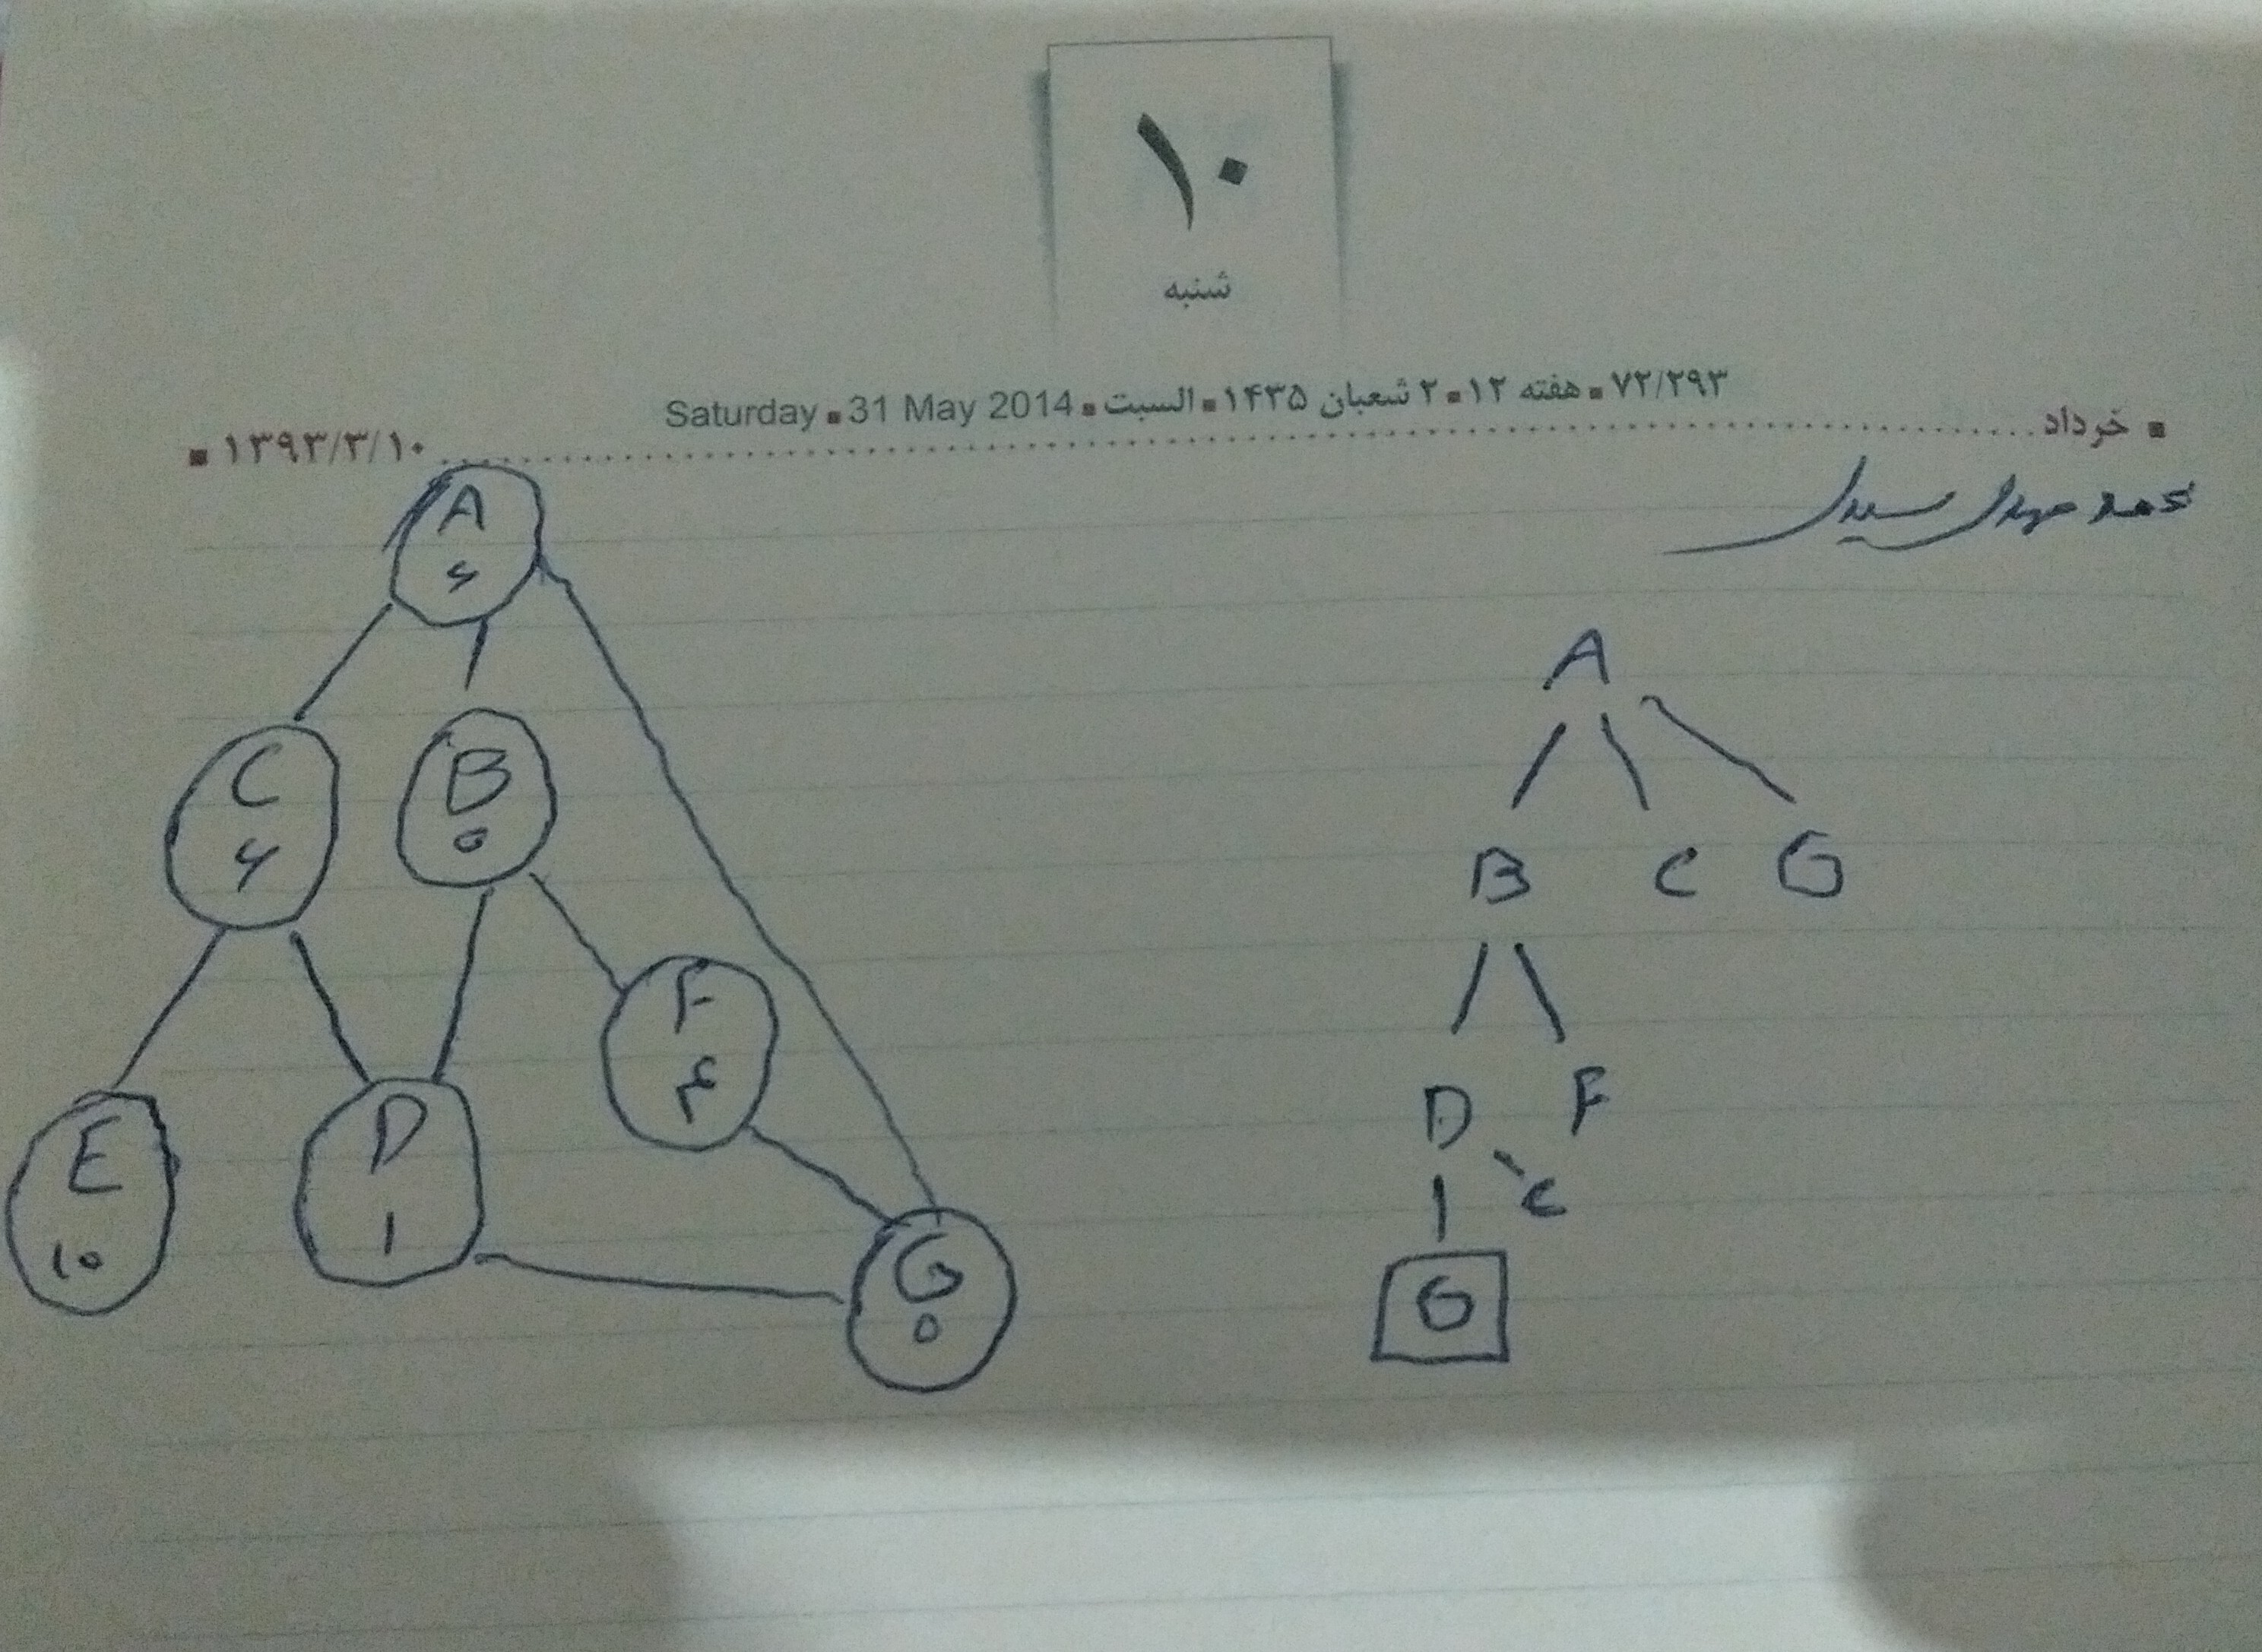 ۱۰
شنبه
۷۲/۲۹۳ ■ هفته ۱۲ ■ ۲ شعبان ۱۴۳۵ ■ السبت ■ 31 May 2014 ■ Saturday
■ خرداد
۱۳۹۳/۳/۱۰ ■
محمد مهدی سیدی
A
A
C
B
B C G
F
۴
D F
E
D
C
۱۰
۱
G
G